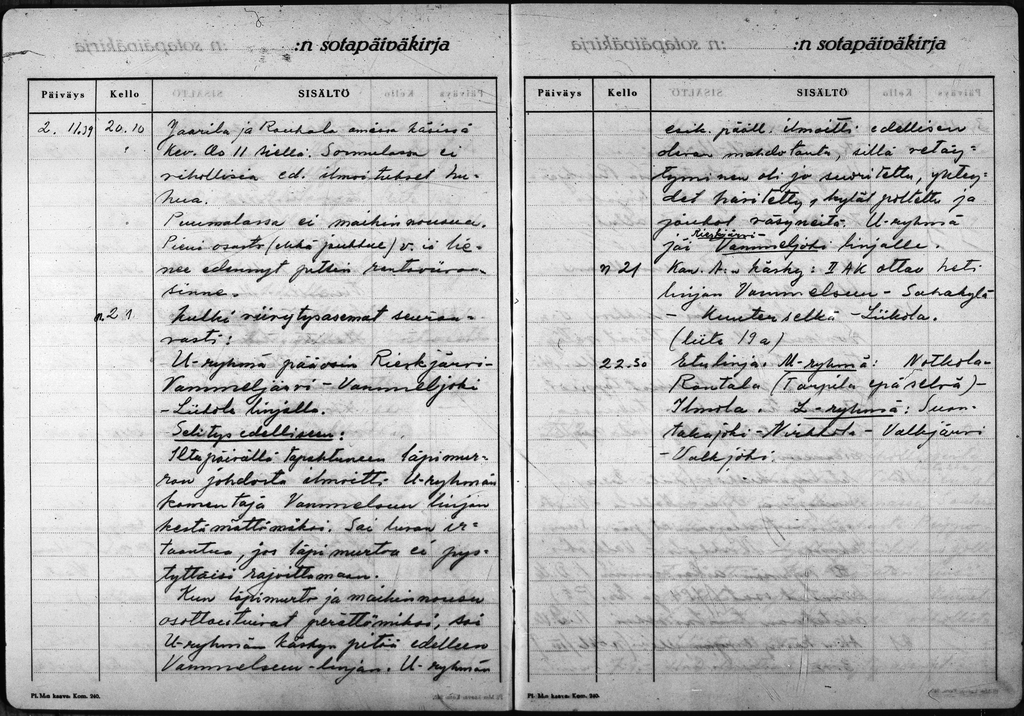 :n sotapäiväkirja
Päiväys Kello SISÄLTÖ
2. 11/39 20.10 Jaarila ja Rauhala omissa käsissä
Kev. Os 11 siellä. Sormulassa ei
vihollisia ed. ilmoitukset hu-
hua.
Puumalassa ei maihinnousua.
Pieni osasto (ehkä joukkue) v:ia lie-
nee edennyt pitkin rantaviivaa
sinne.
n. 21 kulki viivytysasemat seuraa-
vasti:
U-ryhmä pääosin Rieskjärvi-
Vammeljärvi - Vammeljoki
- Liikola linjalla.
Selitys edelliseen:
Iltapäivällä tapahtuneen läpimur-
ron johdosta ilmoitti U-ryhmän
komentaja Vammelsuun linjan
kestämättömäksi. Sai luvan ir-
taantua, jos läpimurtoa ei pys-
tyttäisi rajoittamaan.
Kun läpimurto ja maihinnousu
osottautuivat perättömiksi, sai
U-ryhmän käskyn pitää edelleen
Vammelsuun-linjan. U-ryhmän
Pl. M:n kaava: Kom. 260.
:n sotapäiväkirja
Päiväys Kello SISÄLTÖ
esik. pääll. ilmoitti edellisen
olevan mahdotonta, sillä vetäy-
tyminen oli jo suoritettu, yhtey-
det hävitetty, kylät poltettu ja
joukot väsyneitä. U-ryhmä
jäi Rieskjärvi- Vammeljoki linjalle.
n 21 Kan. A:n käsky: II AK ottaa heti
linjan Vammelsuu - Sahakylä
- Kuuterselkä - Liikola.
(liite 19a)
22.50 Etulinja: U-ryhmä: Notkola-
Rantala (Tarpila epäselvä) -
Ilmola. L-ryhmä: Suon-
takajoki - Nirkkola - Valkjärvi
- Valkjoki.
Pl. M:n kaava: Kom. 260.